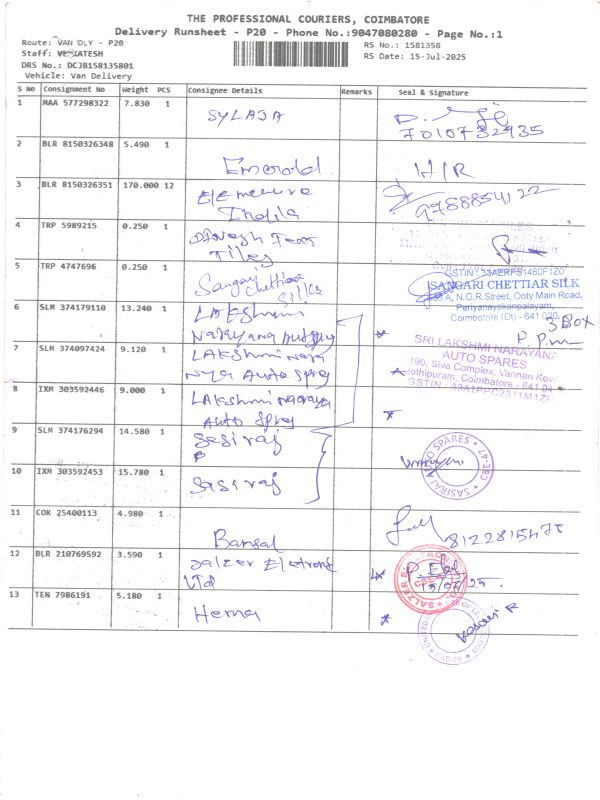 THE PROFESSIONAL COURIERS, COIMBATORE
Delivery Runsheet - P20 - Phone No.:9047080280 - Page No.:1
Route: VAN DLY - P20
RS No.: 1581358
Staff: VENKATESH
RS Date: 15-Jul-2025
DRS No.: DCJB158135801
Vehicle: Van Delivery
S No Consignment No Weight PCS Consignee Details Remarks Seal & Signature
1 MAA 577298322 7.830 1 SYLAJA
7010732935
2 BLR 8150326348 5.490 1 Emerald H/R
3 BLR 8150326351 170.000 12
9788854122
4 TRP 5989215 0.250 1 Dinesh
Tiles
5 TRP 4747696 0.250 1 Sangari Chettiar
Silks
GSTIN : 33AERFS1460F1Z0
SANGARI CHETTIAR SILK
N.G.R.Street, Ooty Main Road,
Periyanayakanpalayam,
Coimbatore (Dt) - 641 020.
6 SLM 374179110 13.240 1 LAKshmi
Narayana
3 Box
7 SLM 374097424 9.120 1 LAKshmi Nara
Nya Auto Spry
SRI LAKSHMI NARAYANA
AUTO SPARES
190, Siva Complex, Vannan Kovil
Jothipuram, Coimbatore - 641 04
8 IXM 303592446 9.000 1 LAkshmi Naraya
Auto Spry
9 SLM 374176294 14.580 1 Sasiraj
SASIRAJ AUTO SPARES
CBE-47
10 IXM 303592453 15.780 1 Sasiraj
11 COK 25400113 4.980 1 Bansal
8122815475
12 BLR 210769592 3.590 1 Salzer Eletrone
Ltd
15/07/25
13 TEN 7986191 5.180 1 Hema